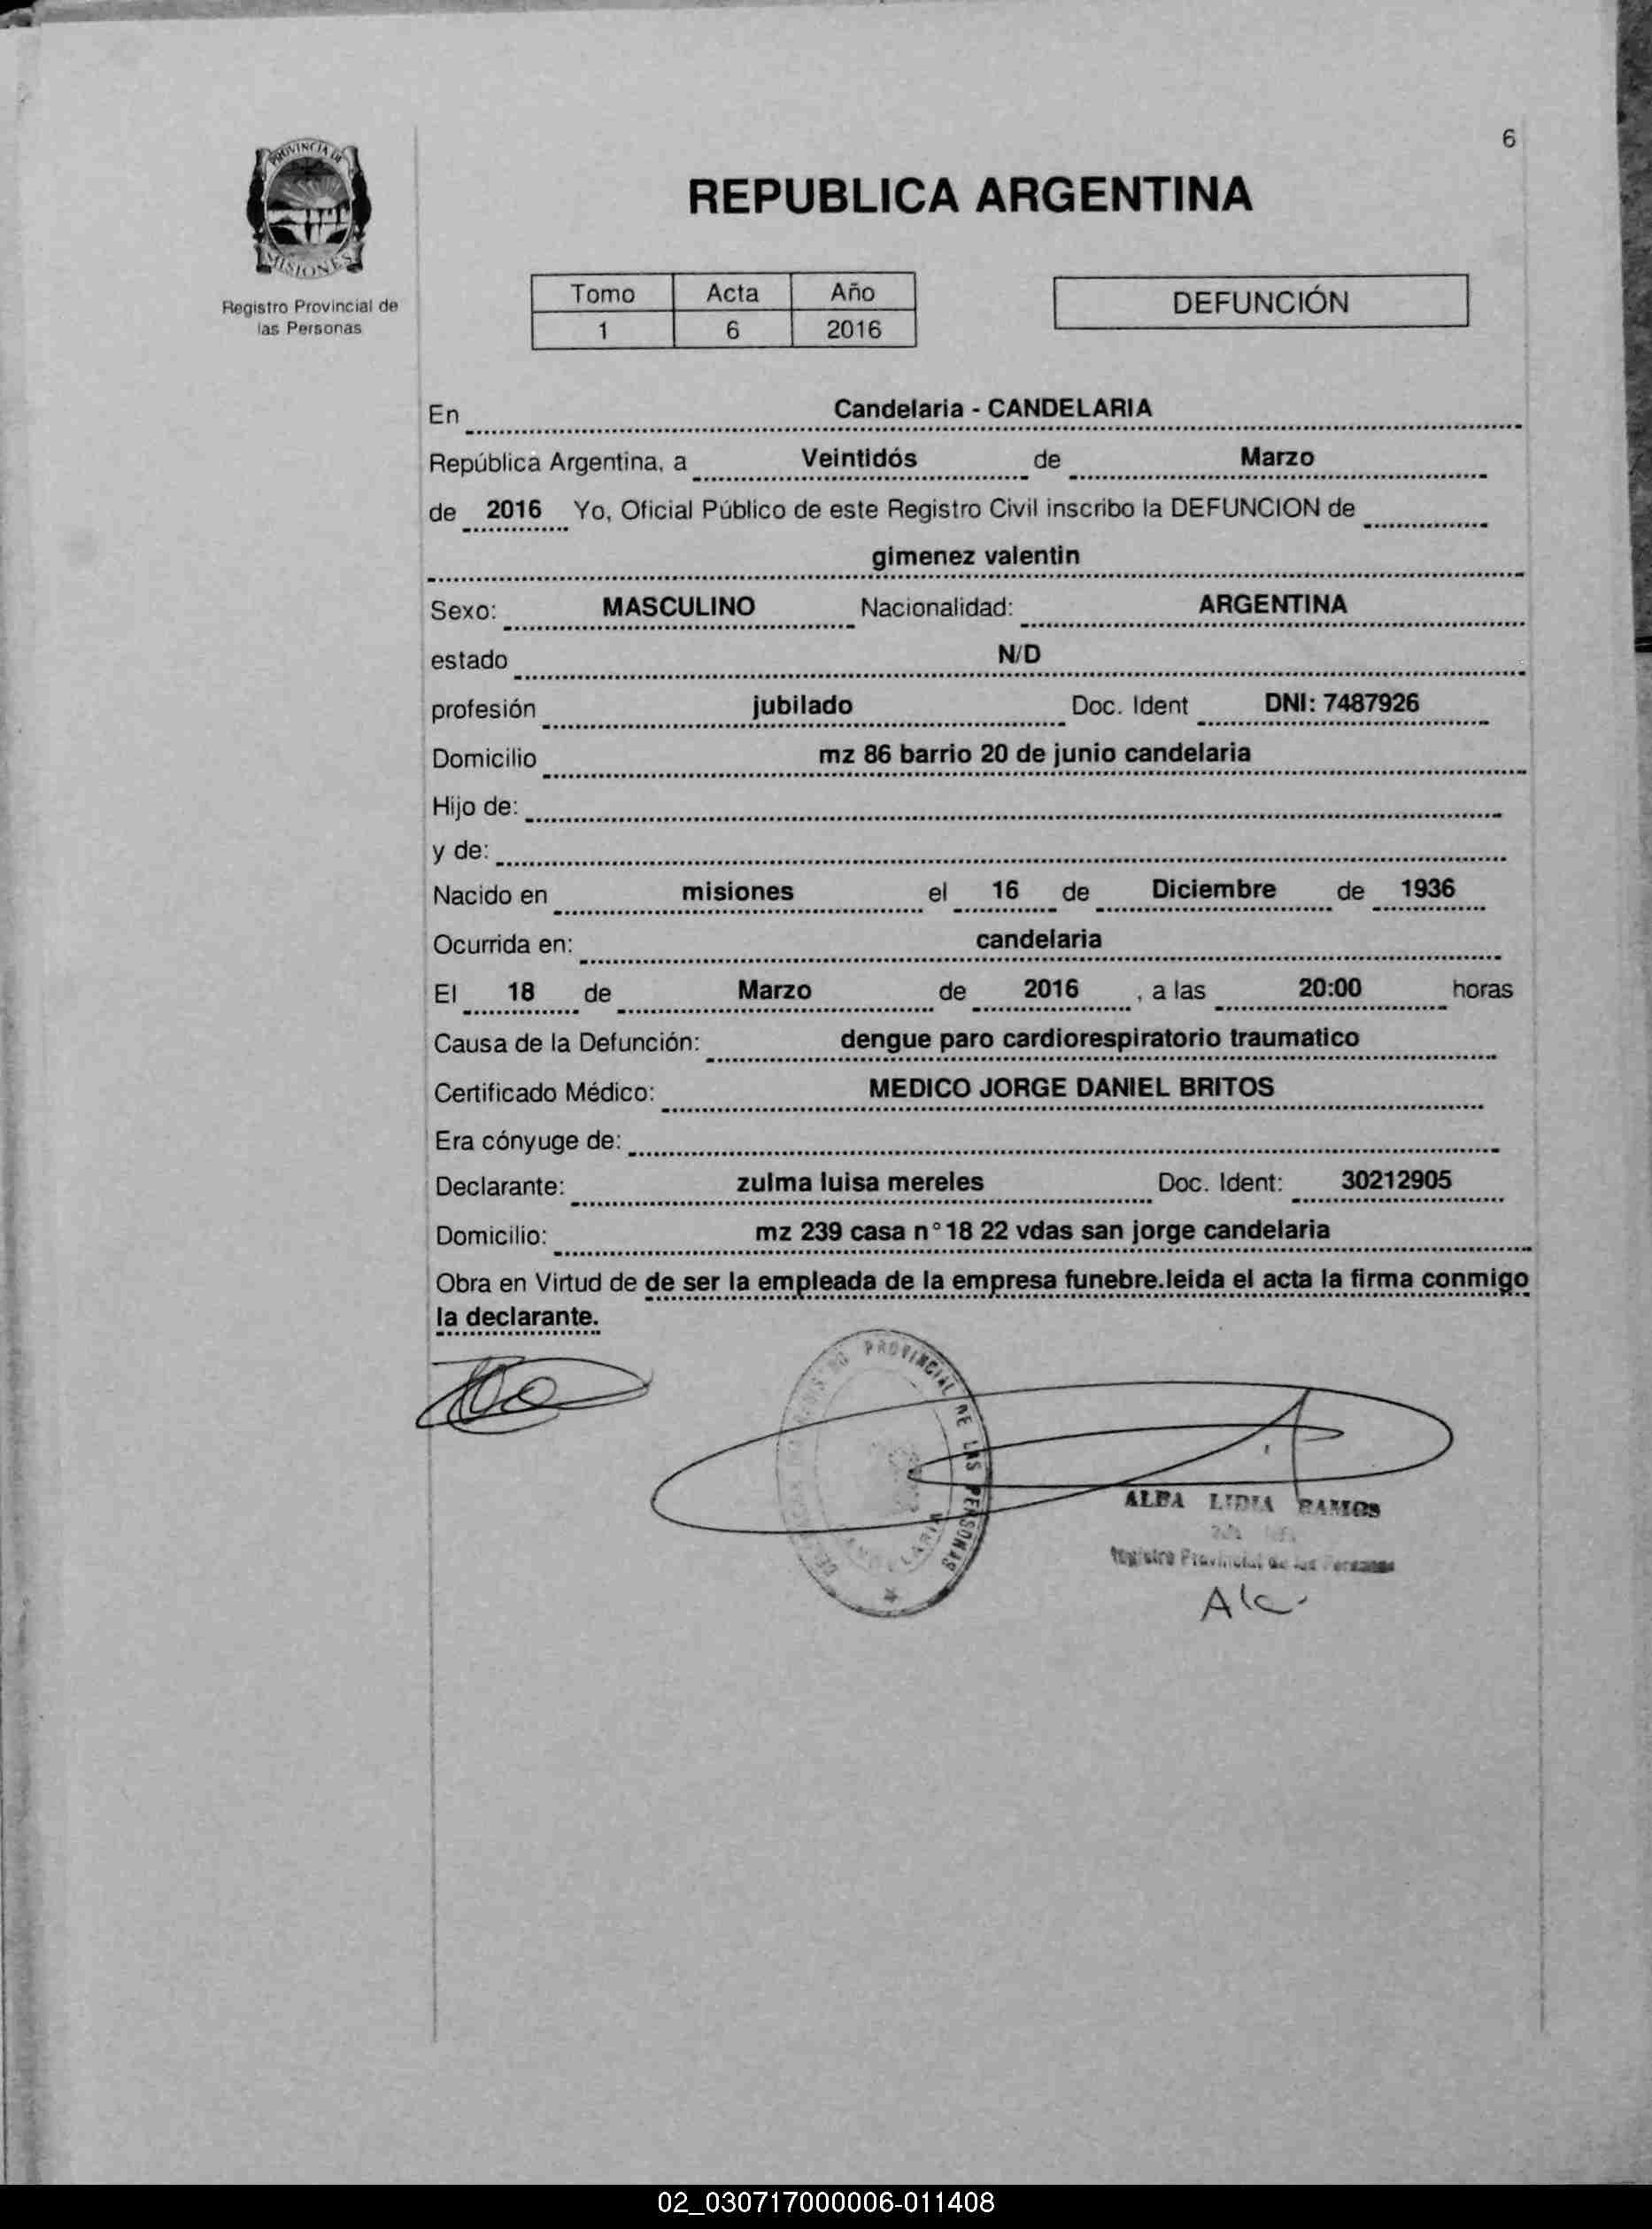 6
PROVINCIA DE
MISIONES
Registro Provincial de
las Personas
REPUBLICA ARGENTINA
Tomo Acta Año
1 6 2016
DEFUNCIÓN
En Candelaria - CANDELARIA
República Argentina, a Veintidós de Marzo
de 2016 Yo, Oficial Público de este Registro Civil inscribo la DEFUNCION de
gimenez valentin
Sexo: MASCULINO Nacionalidad: ARGENTINA
estado N/D
profesión jubilado Doc. Ident DNI: 7487926
Domicilio mz 86 barrio 20 de junio candelaria
Hijo de:
y de:
Nacido en misiones el 16 de Diciembre de 1936
Ocurrida en: candelaria
El 18 de Marzo de 2016 , a las 20:00 horas
Causa de la Defunción: dengue paro cardiorespiratorio traumatico
Certificado Médico: MEDICO JORGE DANIEL BRITOS
Era cónyuge de:
Declarante: zulma luisa mereles Doc. Ident: 30212905
Domicilio: mz 239 casa n°18 22 vdas san jorge candelaria
Obra en Virtud de de ser la empleada de la empresa funebre.leida el acta la firma conmigo
la declarante.
PROVINCIAL DE LAS PERSONAS
ALBA LIDIA RAMOS
Registro Provincial de las Personas
02_030717000006-011408